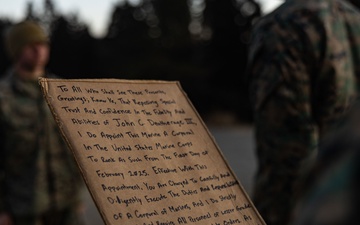 To All Who Shall See These Presents,
Greetings, Know Ye, That Reposing Special
Trust And Confidence In The Fidelity And
Abilities of John C Deuberage III,
I Do Appoint This Marine A Corporal
In The United States Marine Corps
To Rank As Such From The First Day of
February 2025. Effective With This
Appointment, You Are Charged To Carefully And
Diligently Execute The Duties And Responsibilities
Of A Corporal of Marines, And I Do Strictly
And Require All Personnel of Lesser Grade
To Orders As